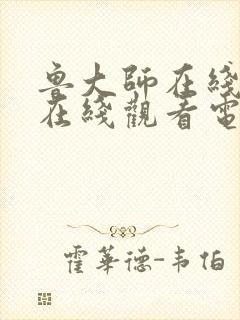 鲁大師在綫
在綫觀看電
霍華德-韦伯